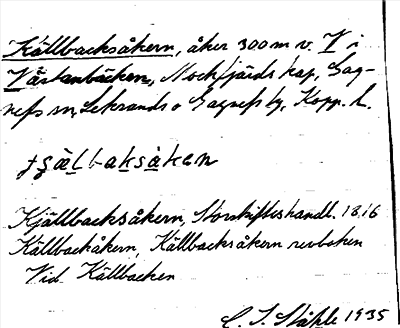 Källbacksåkern, åker 300 m v. V i
Västanbäcken, Mockfjärds kap, Gag-
nefs sn, Leksands o Gagnefs tg, Kopp. l.
Kjällbacksåkern, Storskifteshandl. 1816
Källbackåkern, Källbacksåkern revboken
Vid Källbacken
C. I. Ståhle 1935